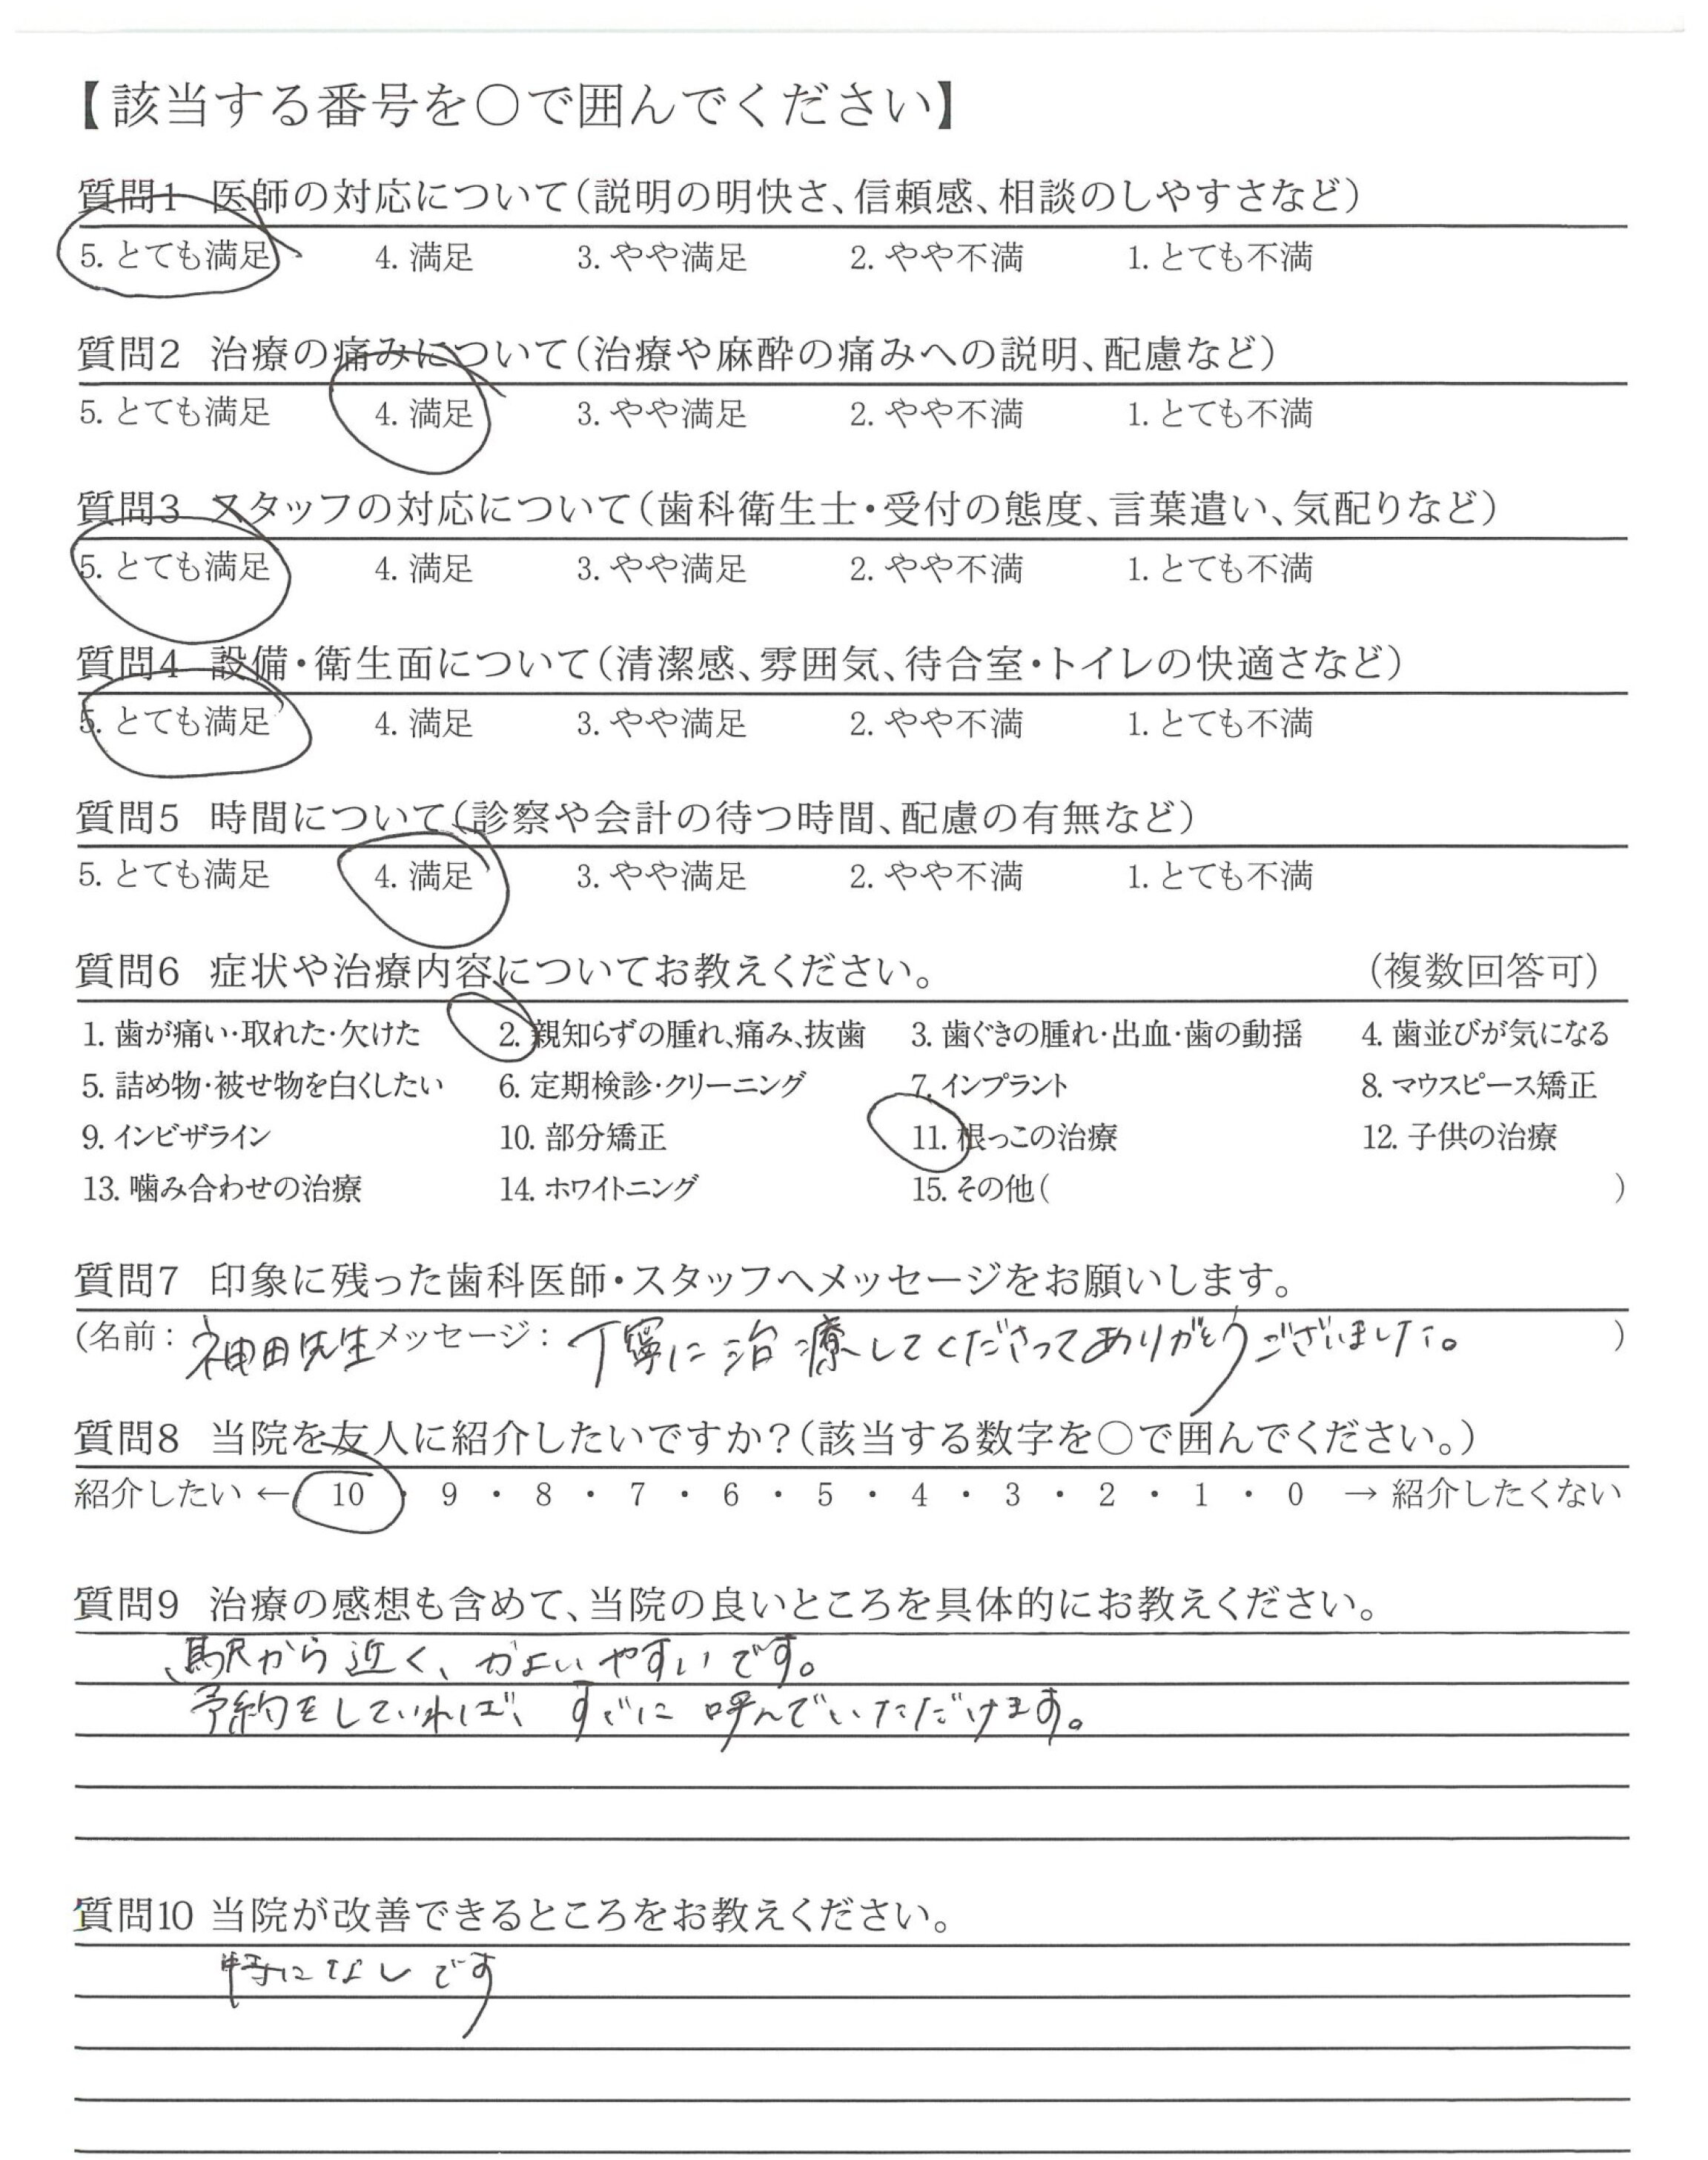 【該当する番号を○で囲んでください】
質問1 医師の対応について(説明の明快さ、信頼感、相談のしやすさなど)
5. とても満足 4. 満足 3. やや満足 2. やや不満 1. とても不満
質問2 治療の痛みについて(治療や麻酔の痛みへの説明、配慮など)
5. とても満足 4. 満足 3. やや満足 2. やや不満 1. とても不満
質問3 スタッフの対応について(歯科衛生士・受付の態度、言葉遣い、気配りなど)
5. とても満足 4. 満足 3. やや満足 2. やや不満 1. とても不満
質問4 設備・衛生面について(清潔感、雰囲気、待合室・トイレの快適さなど)
5. とても満足 4. 満足 3. やや満足 2. やや不満 1. とても不満
質問5 時間について(診察や会計の待つ時間、配慮の有無など)
5. とても満足 4. 満足 3. やや満足 2. やや不満 1. とても不満
質問6 症状や治療内容についてお教えください。 (複数回答可)
1. 歯が痛い・取れた・欠けた 2. 親知らずの腫れ、痛み、抜歯 3. 歯ぐきの腫れ・出血・歯の動揺 4. 歯並びが気になる
5. 詰め物・被せ物を白くしたい 6. 定期検診・クリーニング 7. インプラント 8. マウスピース矯正
9. インビザライン 10. 部分矯正 11. 根っこの治療 12. 子供の治療
13. 噛み合わせの治療 14. ホワイトニング 15. その他( )
質問7 印象に残った歯科医師・スタッフへメッセージをお願いします。
(名前: 神田先生 メッセージ: 丁寧に治療してくださってありがとうございました。 )
質問8 当院を友人に紹介したいですか?(該当する数字を○で囲んでください。)
紹介したい ← 10 ・ 9 ・ 8 ・ 7 ・ 6 ・ 5 ・ 4 ・ 3 ・ 2 ・ 1 ・ 0 → 紹介したくない
質問9 治療の感想も含めて、当院の良いところを具体的にお教えください。
、駅から近く、かよいやすいです。
予約をしていれば、すぐに呼んでいただけます。
質問10 当院が改善できるところをお教えください。
特になしです